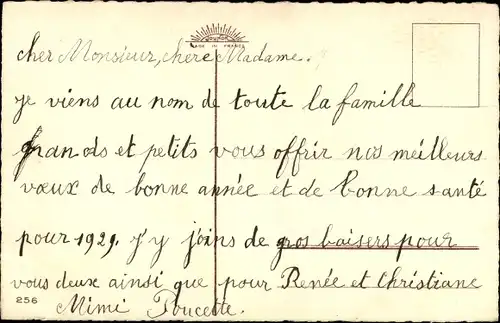 DE FRANCE
cher Monsieur, chère Madame.
je viens au nom de toute la famille
grands et petits vous offrir nos meilleurs
vœux de bonne année et de bonne santé
pour 1929. j'y joins de gros baisers pour
vous deux ainsi que pour Renée et Christiane
256
Mimi Poucette.